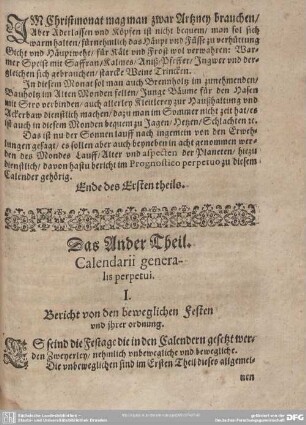 IM Christmonat mag man zwar Artzney brauchen/
Aber Aderlassen und Köpfen ist nicht bequem/ man sol sich
warm halten/ fürnehmlich das Häupt und Füsse zu verhütung
Gicht und Häuptwehe/ für Kält und Frost wol verwahren. War-
mer Speise mit Saffran/ Kalmes/ Aniß/ Pfeffer/ Ingwer und der-
gleichen sich gebrauchen/ starcke Weine Trincken.
In diesem Monat sol man auch Brennholtz im zunehmenden/
Bauholtz im Alten Monden fellen/ Junge Bäume für den Hasen
mit Stro verbinden/ auch allerley Kleiterey zur Haußhaltung und
Ackerbaw dienstlich machen/ dazu man im Sommer nicht zeit hat/ es
ist auch in diesem Monden bequem zu Jagen/ Hetzen/ Schlachten ꝛc.
Das ist nu der Sonnen lauff nach ingemein von den Erweh-
lungen gesagt/ es sollen aber auch beyneben in acht genommen wer-
den des Mondes Lauff/ Alter und aspecten der Planeten/ hiezu
dienstlich/ davon hastu bericht im Prognostico perpetuo zu diesem
Calender gehörig.
Ende des Ersten theils.
Das Ander Theil.
Calendarii genera-
lis perpetui.
I.
Bericht von den beweglichen Festen
und ihrer ordnung.
ES seind die Festage die in den Calendern gesetzt wer-
den Zweyerley/ nehmlich unbewegliche und bewegliche.
Die unbeweglichen sind im Ersten Theil dieses allgemei-
nen